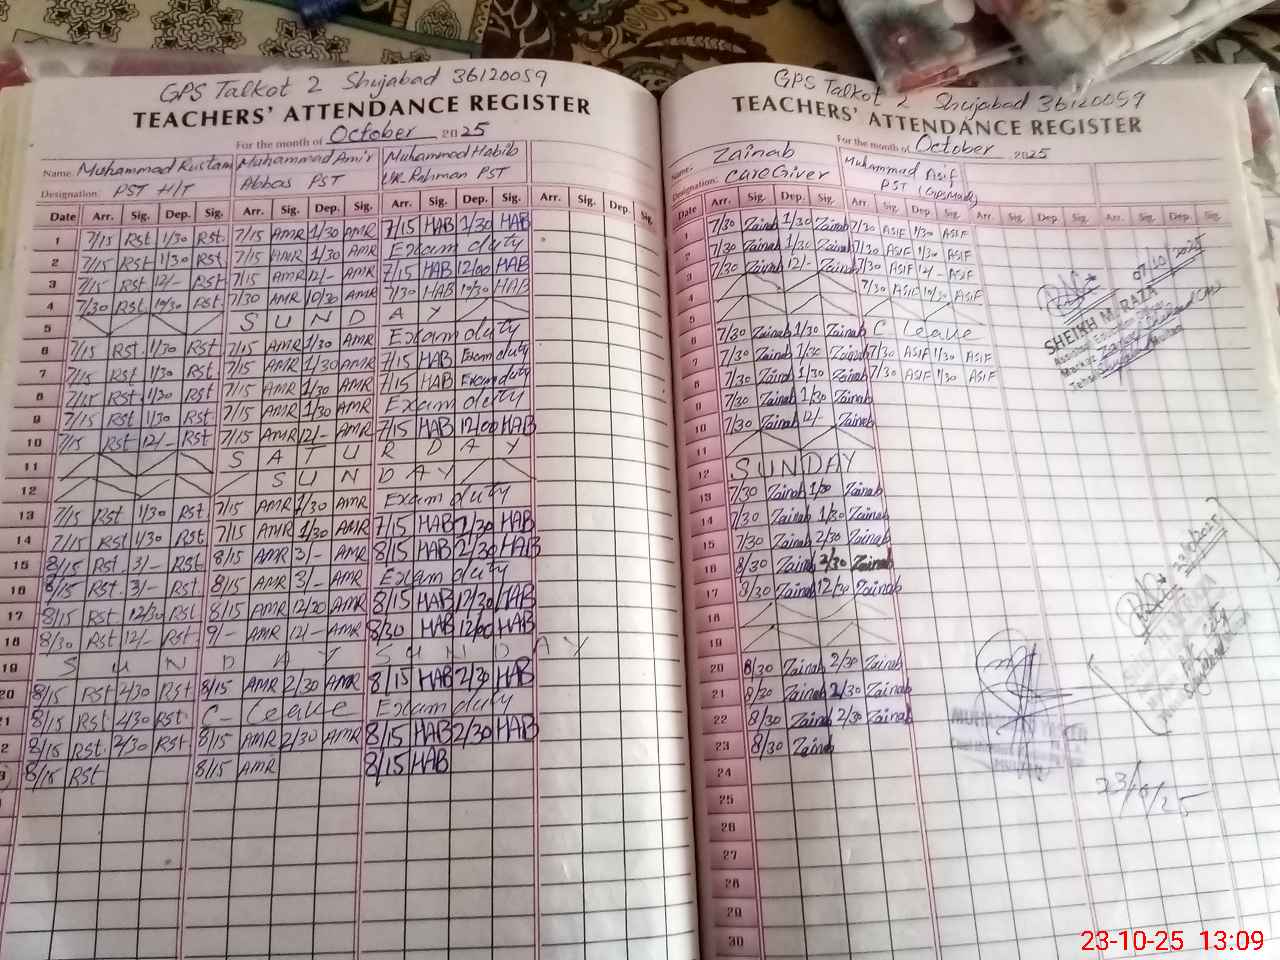 GPS Talkot 2 Shujabad 36120059
TEACHERS' ATTENDANCE REGISTER
For the month of October 2025
Name: Muhammad Rustam Muhammad Amir Muhammad Habib
Designation: PST H/T Abbas PST UR Rahman PST
Date Arr. Sig. Dep. Sig. Arr. Sig. Dep. Sig. Arr. Sig. Dep. Sig. Arr. Sig. Dep. Sig.
1 7/15 Rst 1/30 Rst. 7/15 AMR 1/30 AMR 7/15 HAB 1/30 HAB
2 7/15 Rst 1/30 Rst 7/15 AMR 1/30 AMR Exam duty
3 7/15 Rst 12/- Rst 7/15 AMR 12/- AMR 7/15 HAB 12/00 HAB
4 7/30 Rst 10/30 Rst 7/30 AMR 10/30 AMR 7/30 HAB 10/30 HAB
5 S U N D A Y
6 7/15 Rst. 1/30 Rst 7/15 AMR 1/30 AMR Exam duty
7 7/15 Rst 1/30 Rst. 7/15 AMR 1/30 AMR 7/15 HAB Exam duty
8 7/15 Rst 1/30 Rst 7/15 AMR 1/30 AMR 7/15 HAB Exam duty
9 7/15 Rst 1/30 Rst 7/15 AMR 1/30 AMR Exam duty
10 7/15 Rst 12/- Rst 7/15 AMR 12/- AMR 7/15 HAB 12/00 HAB
11 S A T U R D A Y
12 S U N D A Y
13 7/15 Rst 1/30 Rst 7/15 AMR 1/30 AMR Exam duty
14 7/15 Rst 1/30 Rst 7/15 AMR 1/30 AMR 7/15 HAB HAB
15 8/15 Rst. 3/- Rst 8/15 AMR 3/- AMR 8/15 HAB 2/30 HAB
16 8/15 Rst. 3/- Rst 8/15 AMR 3/- AMR Exam duty
17 8/15 Rst 12/30 Rst 8/15 AMR 12/30 AMR 8/15 HAB 12/30 HAB
18 8/30 Rst 12/- Rst 9/- AMR 12/- AMR 8/30 HAB 12/00 HAB
19 S U N D A Y S U N D A Y
20 8/15 Rst 2/30 Rst 8/15 AMR 2/30 AMR 8/15 HAB 2/30 HAB
21 8/15 Rst 2/30 Rst C- Leave Exam duty
2 8/15 Rst. 2/30 Rst 8/15 AMR 2/30 AMR 8/15 HAB 2/30 HAB
3 8/15 Rst 8/15 AMR 8/15 HAB
GPS Talkot 2 Shujabad 36120059
TEACHERS' ATTENDANCE REGISTER
For the month of October 2025
Name: Zainab Muhammad Asif
Designation: CareGiver PST
Date Arr. Sig. Dep. Sig. Arr. Sig. Dep Sig. Arr. Sig. Dep. Sig. Arr. Sig. Dep. Sig.
1 7/30 Zainab 1/30 Zainab 7/30 ASIF 1/30 ASIF
2 7/30 Zainab 1/30 Zainab 7/30 ASIF 1/30 ASIF
3 7/30 Zainab 12/- Zainab 7/30 ASIF 12/- ASIF
4 7/30 ASIF 10/30 ASIF
5
6 7/30 Zainab 1/30 Zainab C Leave
7 7/30 Zainab 1/30 Zainab 7/30 ASIF 1/30 ASIF
8 7/30 Zainab 1/30 Zainab 7/30 ASIF 1/30 ASIF
9 7/30 Zainab 1/30 Zainab
10 7/30 Zainab 12/- Zainab
11
12 SUNDAY
13 7/30 Zainab 1/30 Zainab
14 7/30 Zainab 1/30 Zainab
15 7/30 Zainab 2/30 Zainab
16 8/30 Zainab 2/30 Zainab
17 Zainab 12/30 Zainab
18
19
20 8/30 Zainab 2/30 Zainab
21 8/30 Zainab 2/30 Zainab
22 8/30 Zainab 2/30 Zainab
23 8/30 Zainab
24
25
26
27
28
29
30
07/10/2025
SHEIKH M. RAZA
23/10/25
23-10-25 13:09